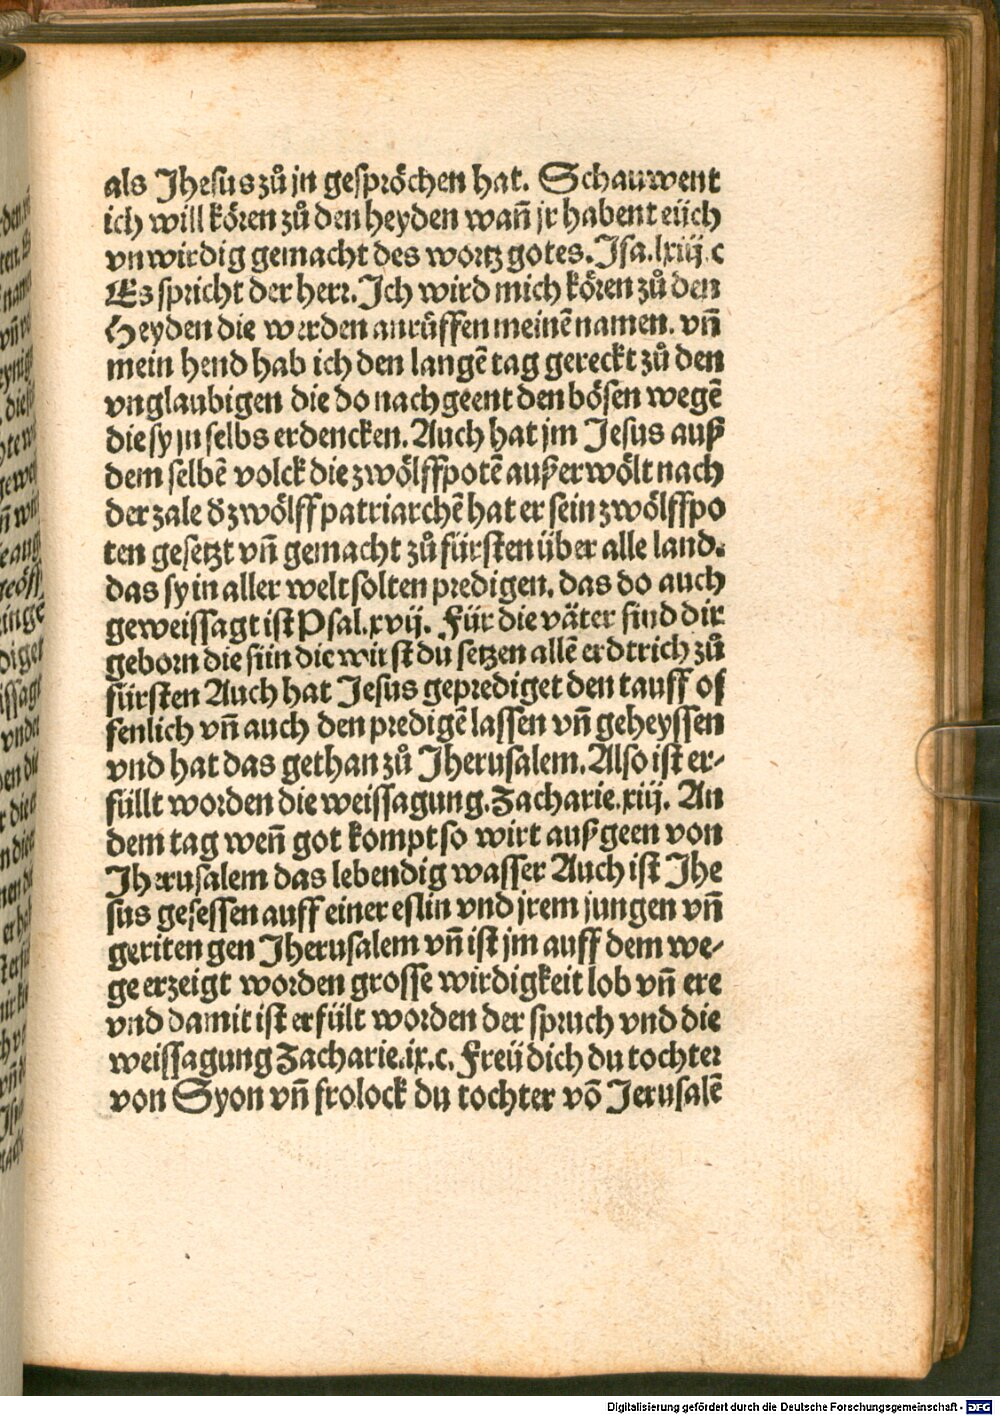 als Jhesus zů jn gespröchen hat. Schauwent
ich will kören zů den heyden wañ jr habent eüch
vnwirdig gemacht des wortz gotes. Jsa. lxiij. c
Es spricht der herr. Jch wird mich kören zů den
Heyden die werden anrüffen meinē namen. vñ
mein hend hab ich den langē tag gereckt zů den
vnglaubigen die do nach geent den bösen wegē
die sy jn selbs erdencken. Auch hat jm Jesus auß
dem selbē volck die zwölffpotē außerwölt nach
der zale ð zwölff patriarchē hat er sein zwölffpo
ten gesetzt vñ gemacht zů fürsten über alle land.
das sy in aller welt solten predigen. das do auch
geweissagt ist Psal. xvij. Für die väter sind dir
geborn die sün die wirst du setzen allē erdtrich zů
fürsten Auch hat Jesus geprediget den tauff of
fenlich vñ auch den predigē lassen vñ geheyssen
vnd hat das gethan zů Jherusalem. Also ist er-
füllt worden die weissagung. Zacharie. xiij. An
dem tag weñ got kompt so wirt auß geen von
Jherusalem das lebendig wasser Auch ist Jhe
sus gesessen auff einer eslin vnd jrem jungen vñ
geriten gen Jherusalem vñ ist jm auff dem we-
ge erzeigt worden grosse wirdigkeit lob vñ ere
vnd damit ist erfült worden der spruch vnd die
weissagung Zacharie. ix. c. Freü dich du tochter
von Syon vñ frolock du tochter võ Jerusalē
Digitalisierung gefördert durch die Deutsche Forschungsgemeinschaft - DFG